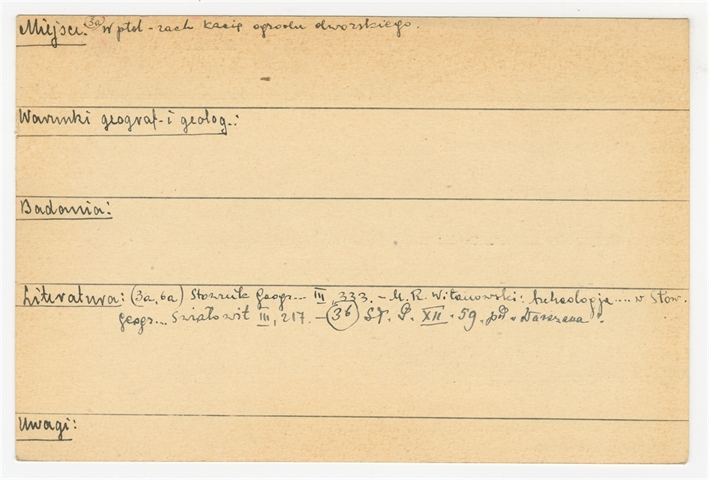 Miejsce: (3a) W płd-zach kącie ogrodu dworskiego.
Warunki geograf-i geolog-:
Badania:
Literatura: (3a, 6a) Słownik Geogr... III, 333. - M. R. Witanowski: Archeologja .... w Słow.
geogr... Światowit III, 217. - (36) XII. 59.
Uwagi: